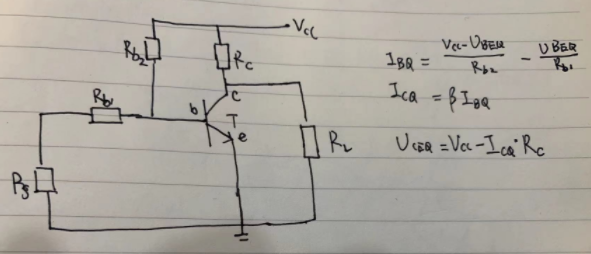 Vcc
Rb2
Rc
Rb1
b
c
T
e
RL
Rs
IBQ = (Vcc-UBEQ)/Rb2 - UBEQ/Rb1
ICQ = βIBQ
UCEQ = Vcc-ICQ·Rc